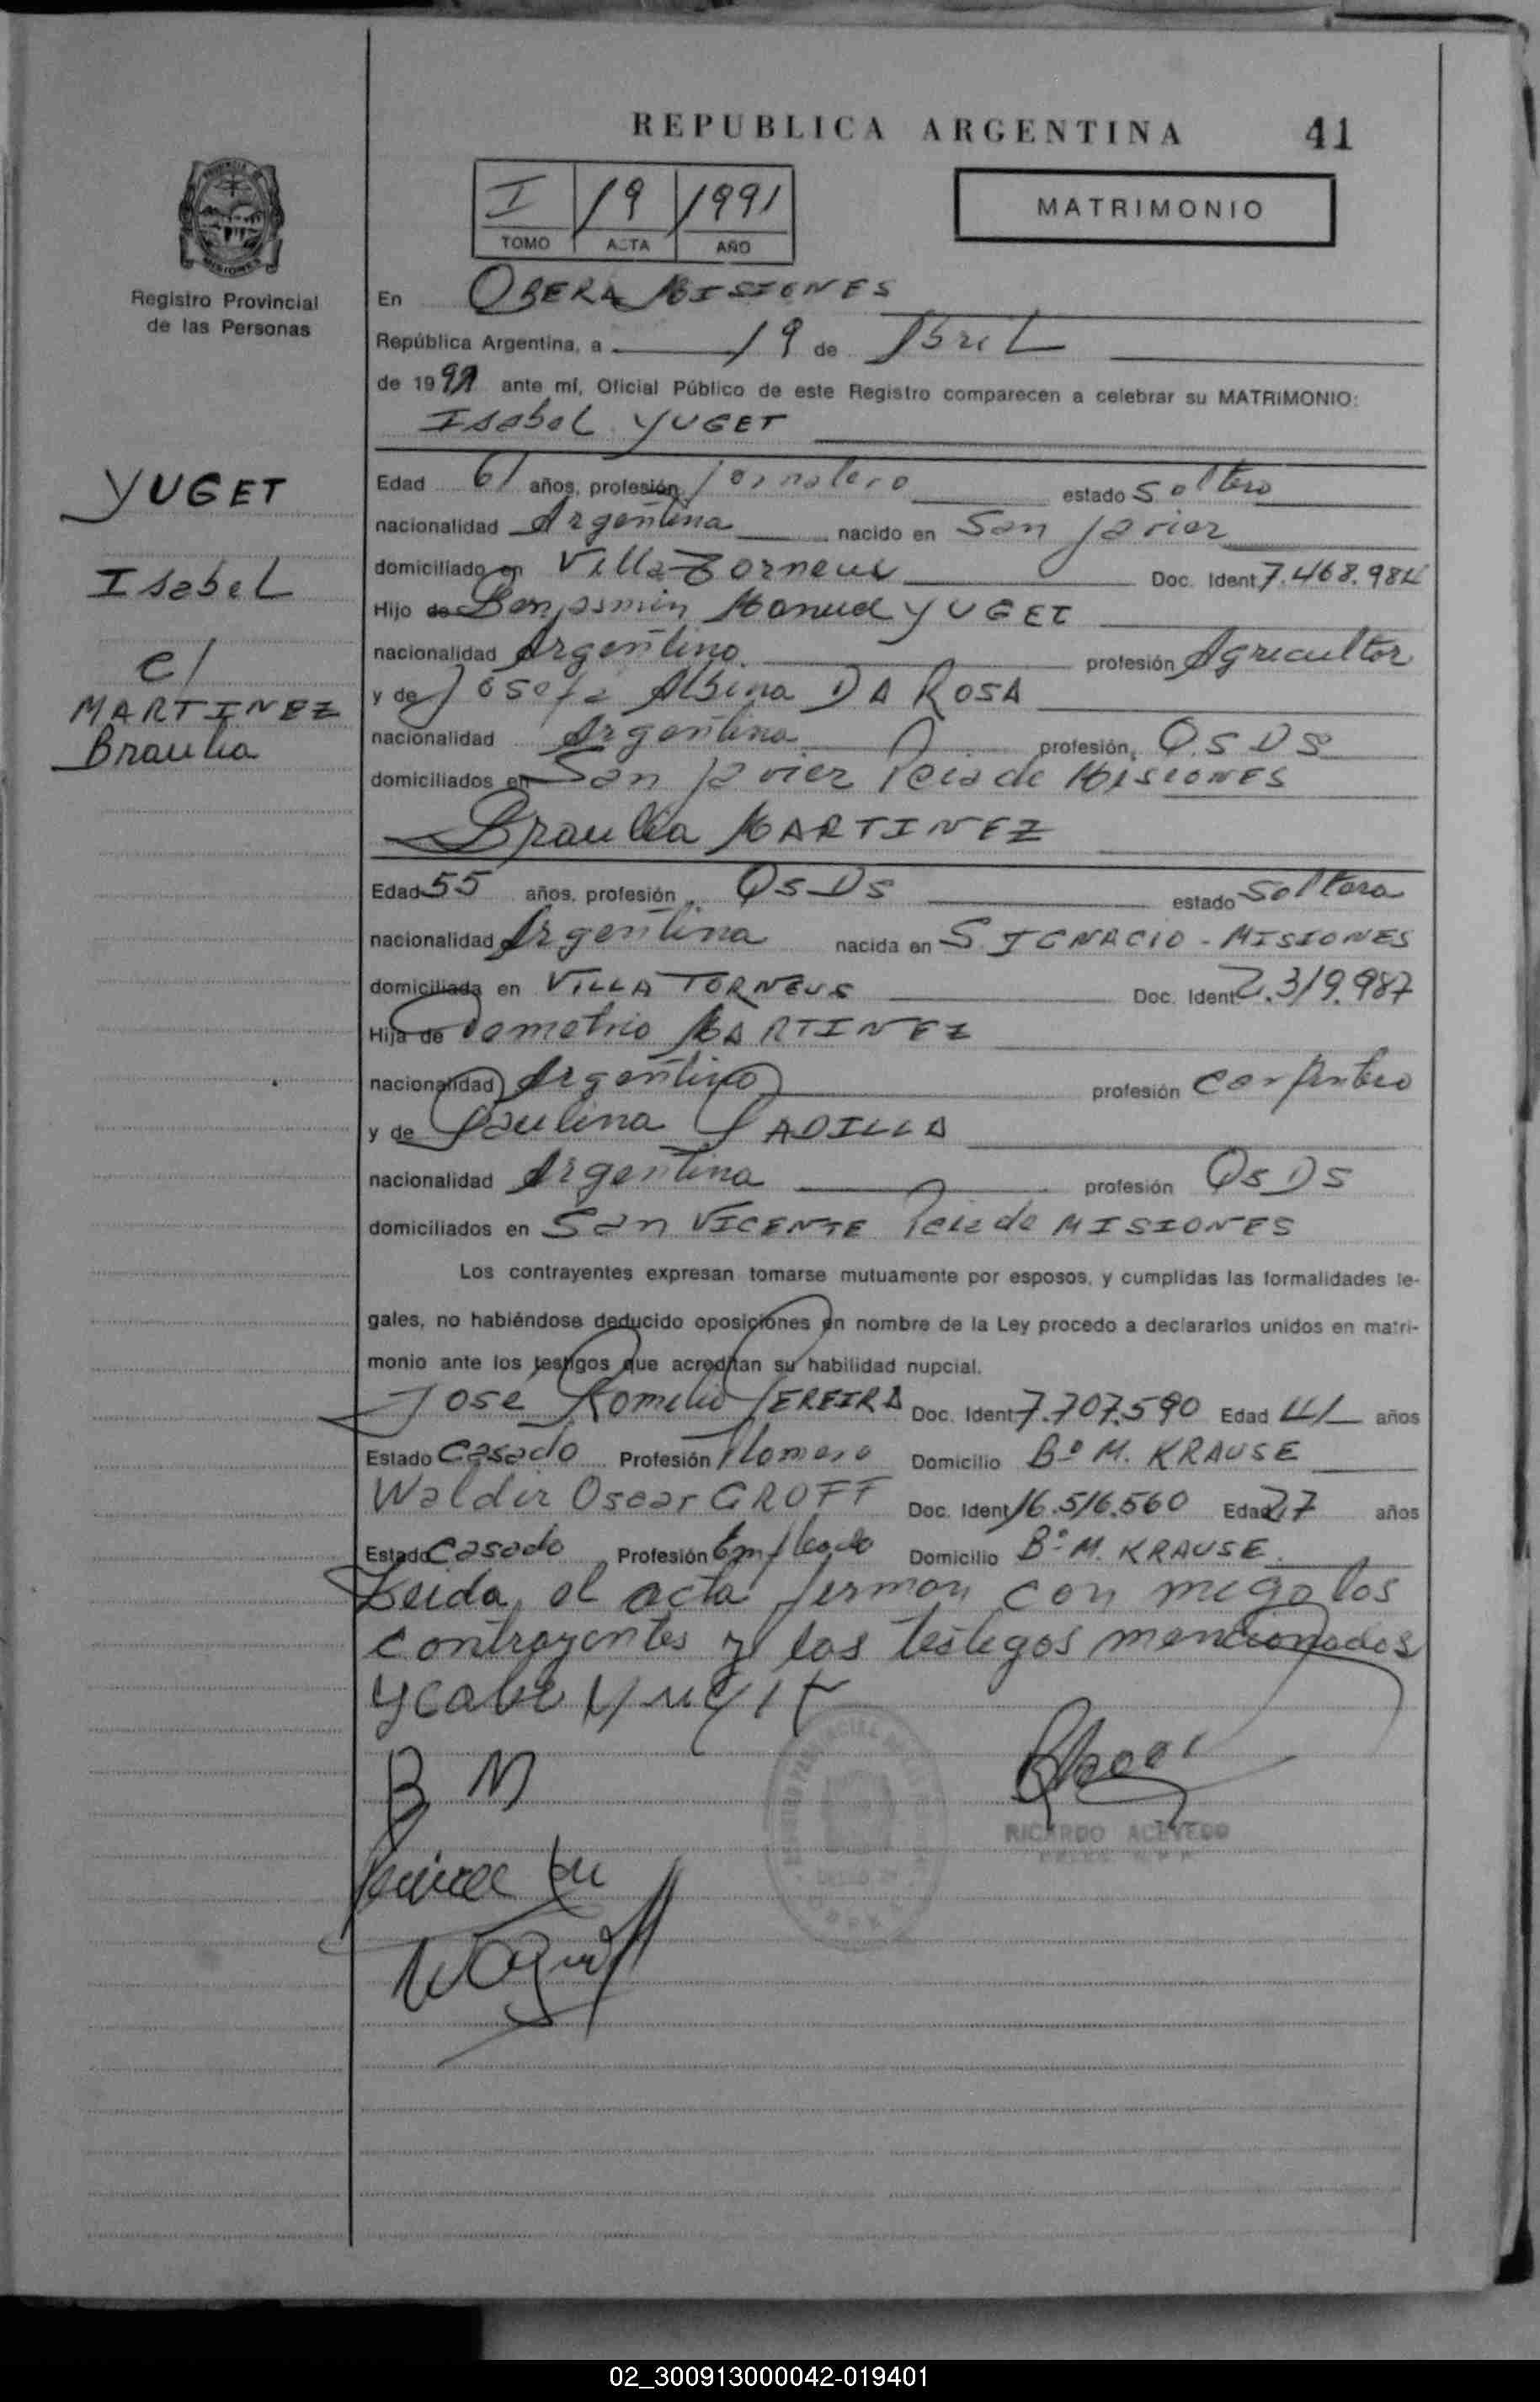 REPUBLICA ARGENTINA 41
I 19 1991
TOMO ACTA AÑO
MATRIMONIO
MISIONES
Registro Provincial
de las Personas
En OBERA MISIONES
República Argentina, a 19 de Abril
de 1991 ante mí, Oficial Público de este Registro comparecen a celebrar su MATRIMONIO:
Isabel YUGET
YUGET
Isabel
c/
MARTINEZ
Braulia
Edad 61 años, profesión Jornalero estado Soltero
nacionalidad Argentina nacido en San Javier
domiciliado en Villa Torneus Doc. Ident 7.468.984
Hijo de Benjasmin Manuel YUGET
nacionalidad Argentino profesión Agricultor
y de Josefa Albina DA ROSA
nacionalidad Argentina profesión Q.S DS
domiciliados en San Javier Pcia de MISIONES
Braulia MARTINEZ
Edad 55 años, profesión QS DS estado Soltera
nacionalidad Argentina nacida en S. IGNACIO - MISIONES
domiciliada en VILLA TORNEUS Doc. Ident 2.319.987
Hija de Demetrio MARTINEZ
nacionalidad Argentino profesión Carpintero
y de Paulina PADILLA
nacionalidad Argentina profesión QS DS
domiciliados en San VICENTE Pcia de MISIONES
Los contrayentes expresan tomarse mutuamente por esposos, y cumplidas las formalidades le-
gales, no habiéndose deducido oposiciones en nombre de la Ley procedo a declararlos unidos en matri-
monio ante los testigos que acreditan su habilidad nupcial.
José Romelio PEREIRA Doc. Ident 7.707.590 Edad 41 años
Estado Casado Profesión Plomero Domicilio Bº M. KRAUSE
Waldir Oscar GROFF Doc. Ident 16.516.560 Edad 27 años
Estado Casado Profesión Empleado Domicilio Bº M. KRAUSE
Leida el acta firman con migo los
contrayentes y los testigos mencionados
B M
RICARDO ACEVEDO
02_300913000042-019401